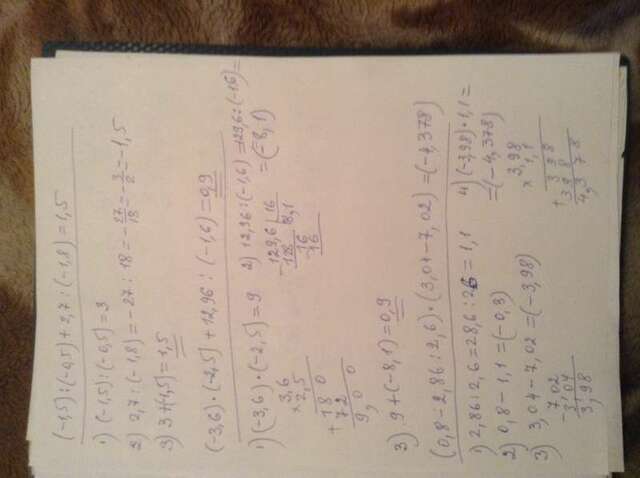 (-1,5):(-0,5)+2,7:(-1,8)=1,5
1) (-1,5):(-0,5)=3
2) 2,7:(-1,8)=-27:18=-27/18=-3/2=-1,5
3) 3+(-1,5)=1,5
(-3,6)·(-2,5)+12,96:(-1,6)=0,9
1) (-3,6)·(-2,5)=9
3,6
×2,5
180
+72
9,00
2) 12,96:(-1,6)=129,6:(-16)=
=(-8,1)
-129,6|16
128 8,1
16
16
3) 9+(-8,1)=0,9
(0,8-2,86:2,6)·(3,04-7,02)=(-4,378)
1) 2,86:2,6=28,6:26=1,1
2) 0,8-1,1=(-0,3)
3) 3,04-7,02=(-3,98)
-7,02
3,04
3,98
4) (-3,98)·1,1=
=(-4,378)
3,98
×1,1
+398
398
4,378